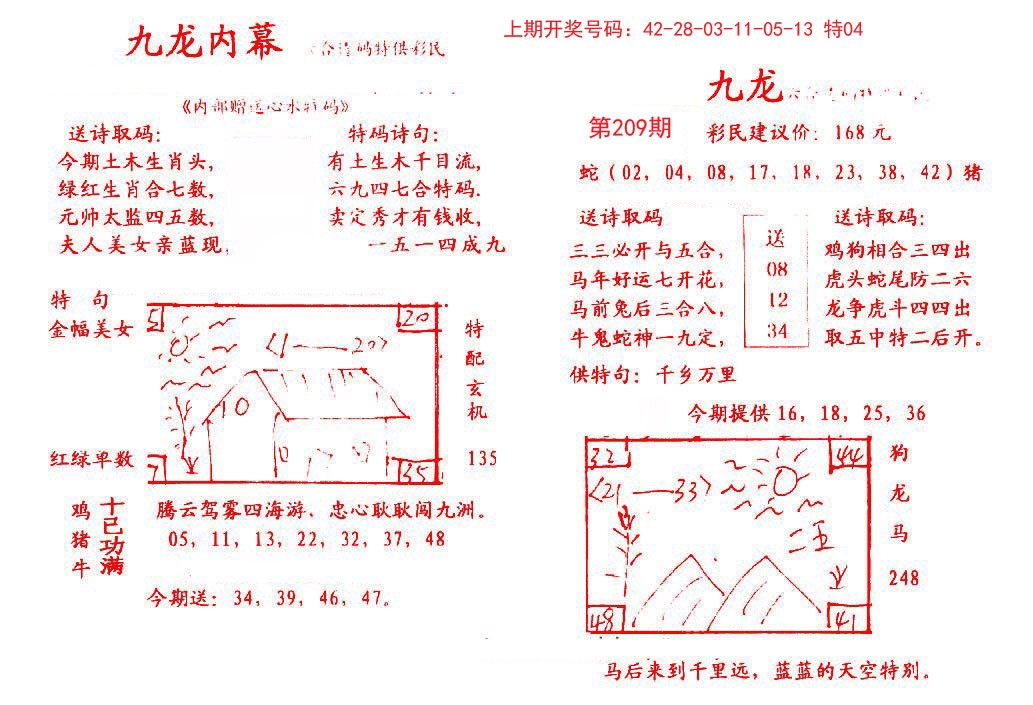 上期开奖号码：42-28-03-11-05-13 特04
九龙内幕
合 码特供彩民
《内部赠送心水特码》
送诗取码：
今期土木生肖头，
绿红生肖合七数，
元帅太监四五数，
夫人美女亲蓝现，
特码诗句：
有土生木千目流，
六九四七合特码.
卖定秀才有钱收，
一五一四成九
特 句
金幅美女
红绿单数
5
20
<1——20>
10
35
特配玄机
135
鸡猪牛
十已功满
腾云驾雾四海游、忠心耿耿闯九洲。
05，11，13，22，32，37，48
今期送：34，39，46，47。
九龙
第209期
彩民建议价：168元
蛇（02，04，08，17，18，23，38，42）猪
送诗取码
三三必开与五合，
马年好运七开花，
马前兔后三合八，
牛鬼蛇神一九定，
送
08
12
34
送诗取码：
鸡狗相合三四出
虎头蛇尾防二六
龙争虎斗四四出
取五中特二后开。
供特句：千乡万里
今期提供16，18，25，36
32
44
<21——33>
二五
48
41
狗
龙
马
248
马后来到千里远，蓝蓝的天空特别。